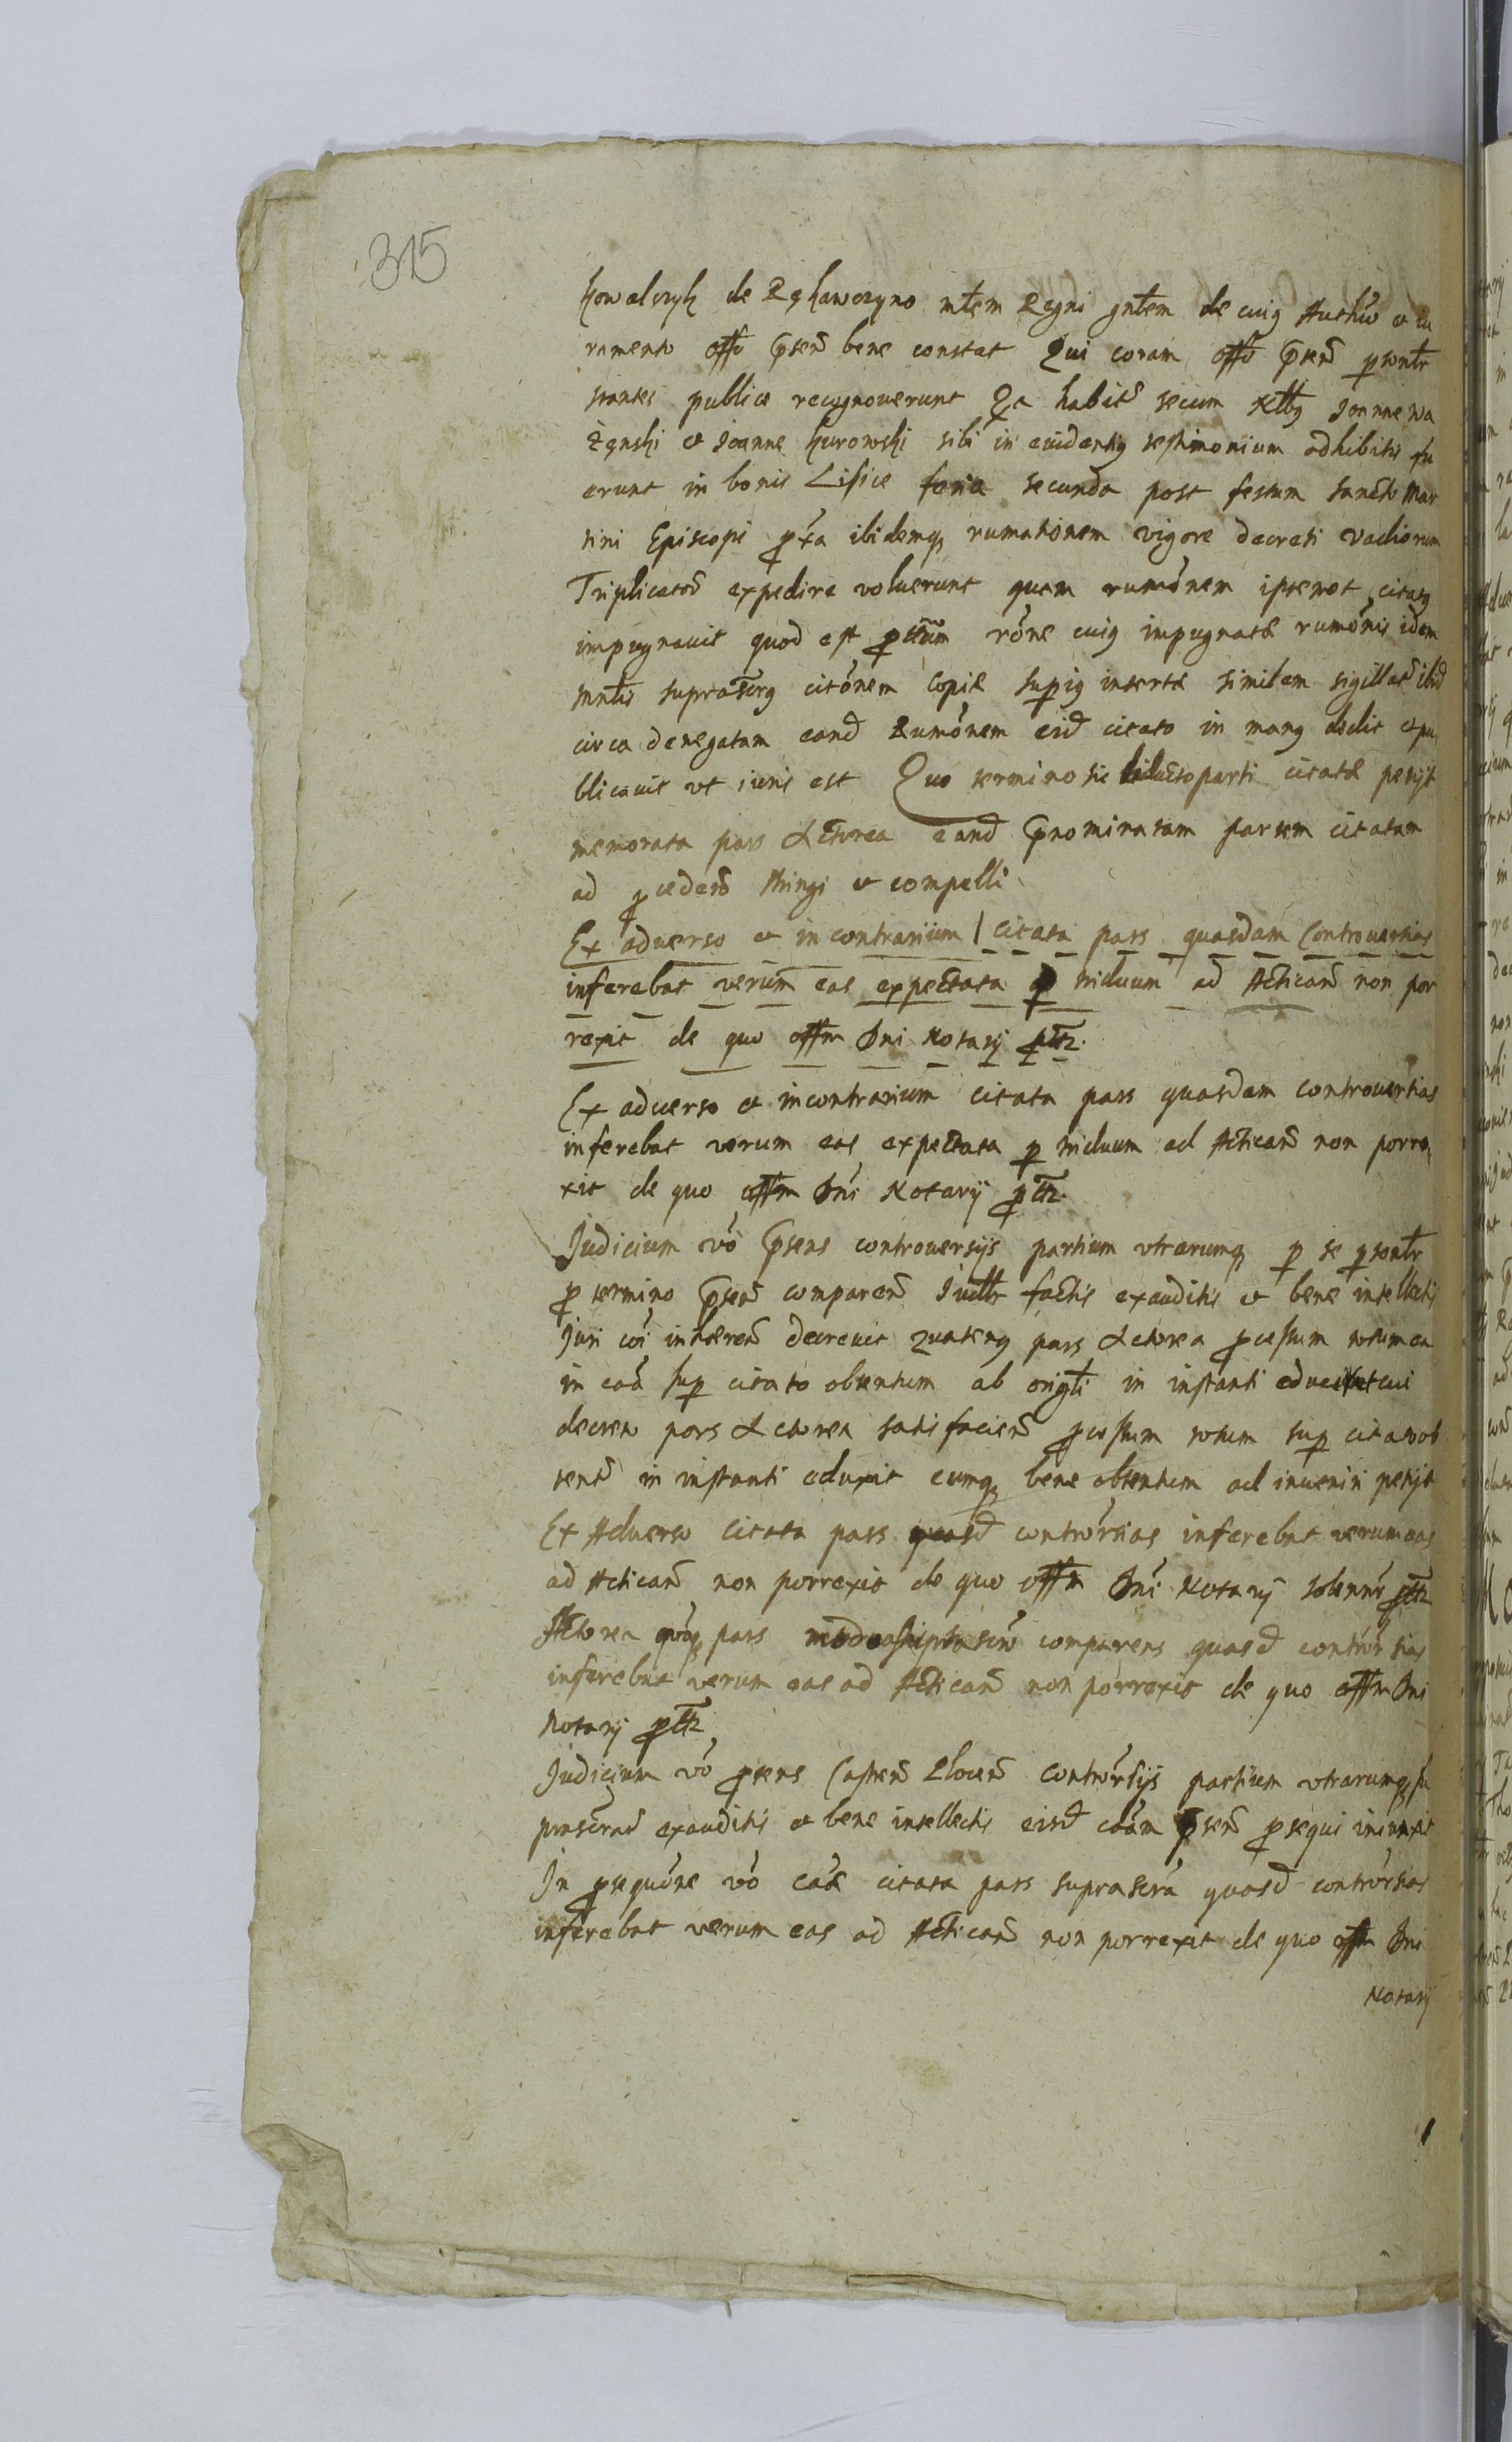 315
Kowalczyk de Rękawczyno mtem Regni gnłem de cuig Authō et iu
ramento offō pñsen bene constat Qui coram offō pñsen psonlr
stantes publice recognoverunt Qa habit secum Nlbg Joanne Wa
żynski et Joanne Kurowski sibi in euidentig testimonium adhibitis fu
erunt in bonis Lisice feria secunda post festum Sancti Mar
tini Episcopi pxa ibidemq rumationem vigore decreti vadiorum
Triplicator expedire voluerunt quam rumonem ipsemet citatg
impugnavit quod est pttum rone cuig impugnatæ rumonis idem
mntis suprascrg citonem Copiæ superig insertæ similem sigillat ibid
circa denegatam eand Rumonem eid citato in mang dedit et pu
blicavit vt iuris est Quo termino sic parti citatæ petijt
memorata pars Actorea eand pnominatam partem citatam
ad pceden stringi et compelli
Ex adverso et in contrarium citata pars quasdam Controvertias
inferebat verum eas expectata p triduum ad Acticand non por
rexit de quo offm Dni Notarij ptr.
Ex adverso et incontrarium citata pars quasdam controvertias
inferebat verum eas expectata p triduum ad Acticand non porre
xit de quo offm Dni Notarij ptr.
Judicium vo pñsens controversijs partium vtrarumq p se psonlr
p termino pñsen comparen Judlr factis exauditis et bene intellectis
Juri coi inhæren decrevit quateng pars Actorea pcessum totum ea
in caa sup citato obtentum ab origli in instanti cui
decreto pars Actorea satisfacien pcessum totum sup citato ob
tent in instanti eduxit eumq bene obtentum ad inveniri petijt
Ex Adverso Citata pars quasd controrsias inferebat verum eas
ad Acticand non porrexit de quo offm Dni Notarij solennr ptr
Actorea quoq pars comparens quasd controrsias
inferebat verum eas ad Acticand non porrexit de quo offm Dni
Notarij ptr
Judicium vo psens Castren Plocen controrsijs partium vtrarumq su
prascrar exauditis et bene intellectis eisd caam psen psequi iniunxit
In psequone vo caæ citata pars suprascra quasd controrsias
inferebat verum eas ad Acticand non porrexit de quo offm Dni
Notarij